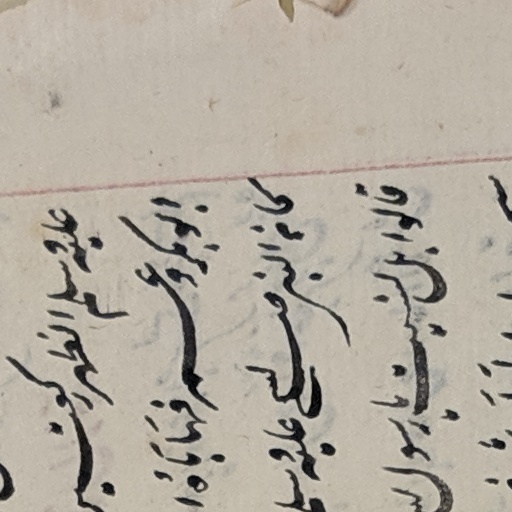 عليه وسلم الظهر ركعتين
ابو بكر وعمر فهاباه ا
كان النبي صلى عليه وسلم
قالوا بل نسيت يا رسول الله